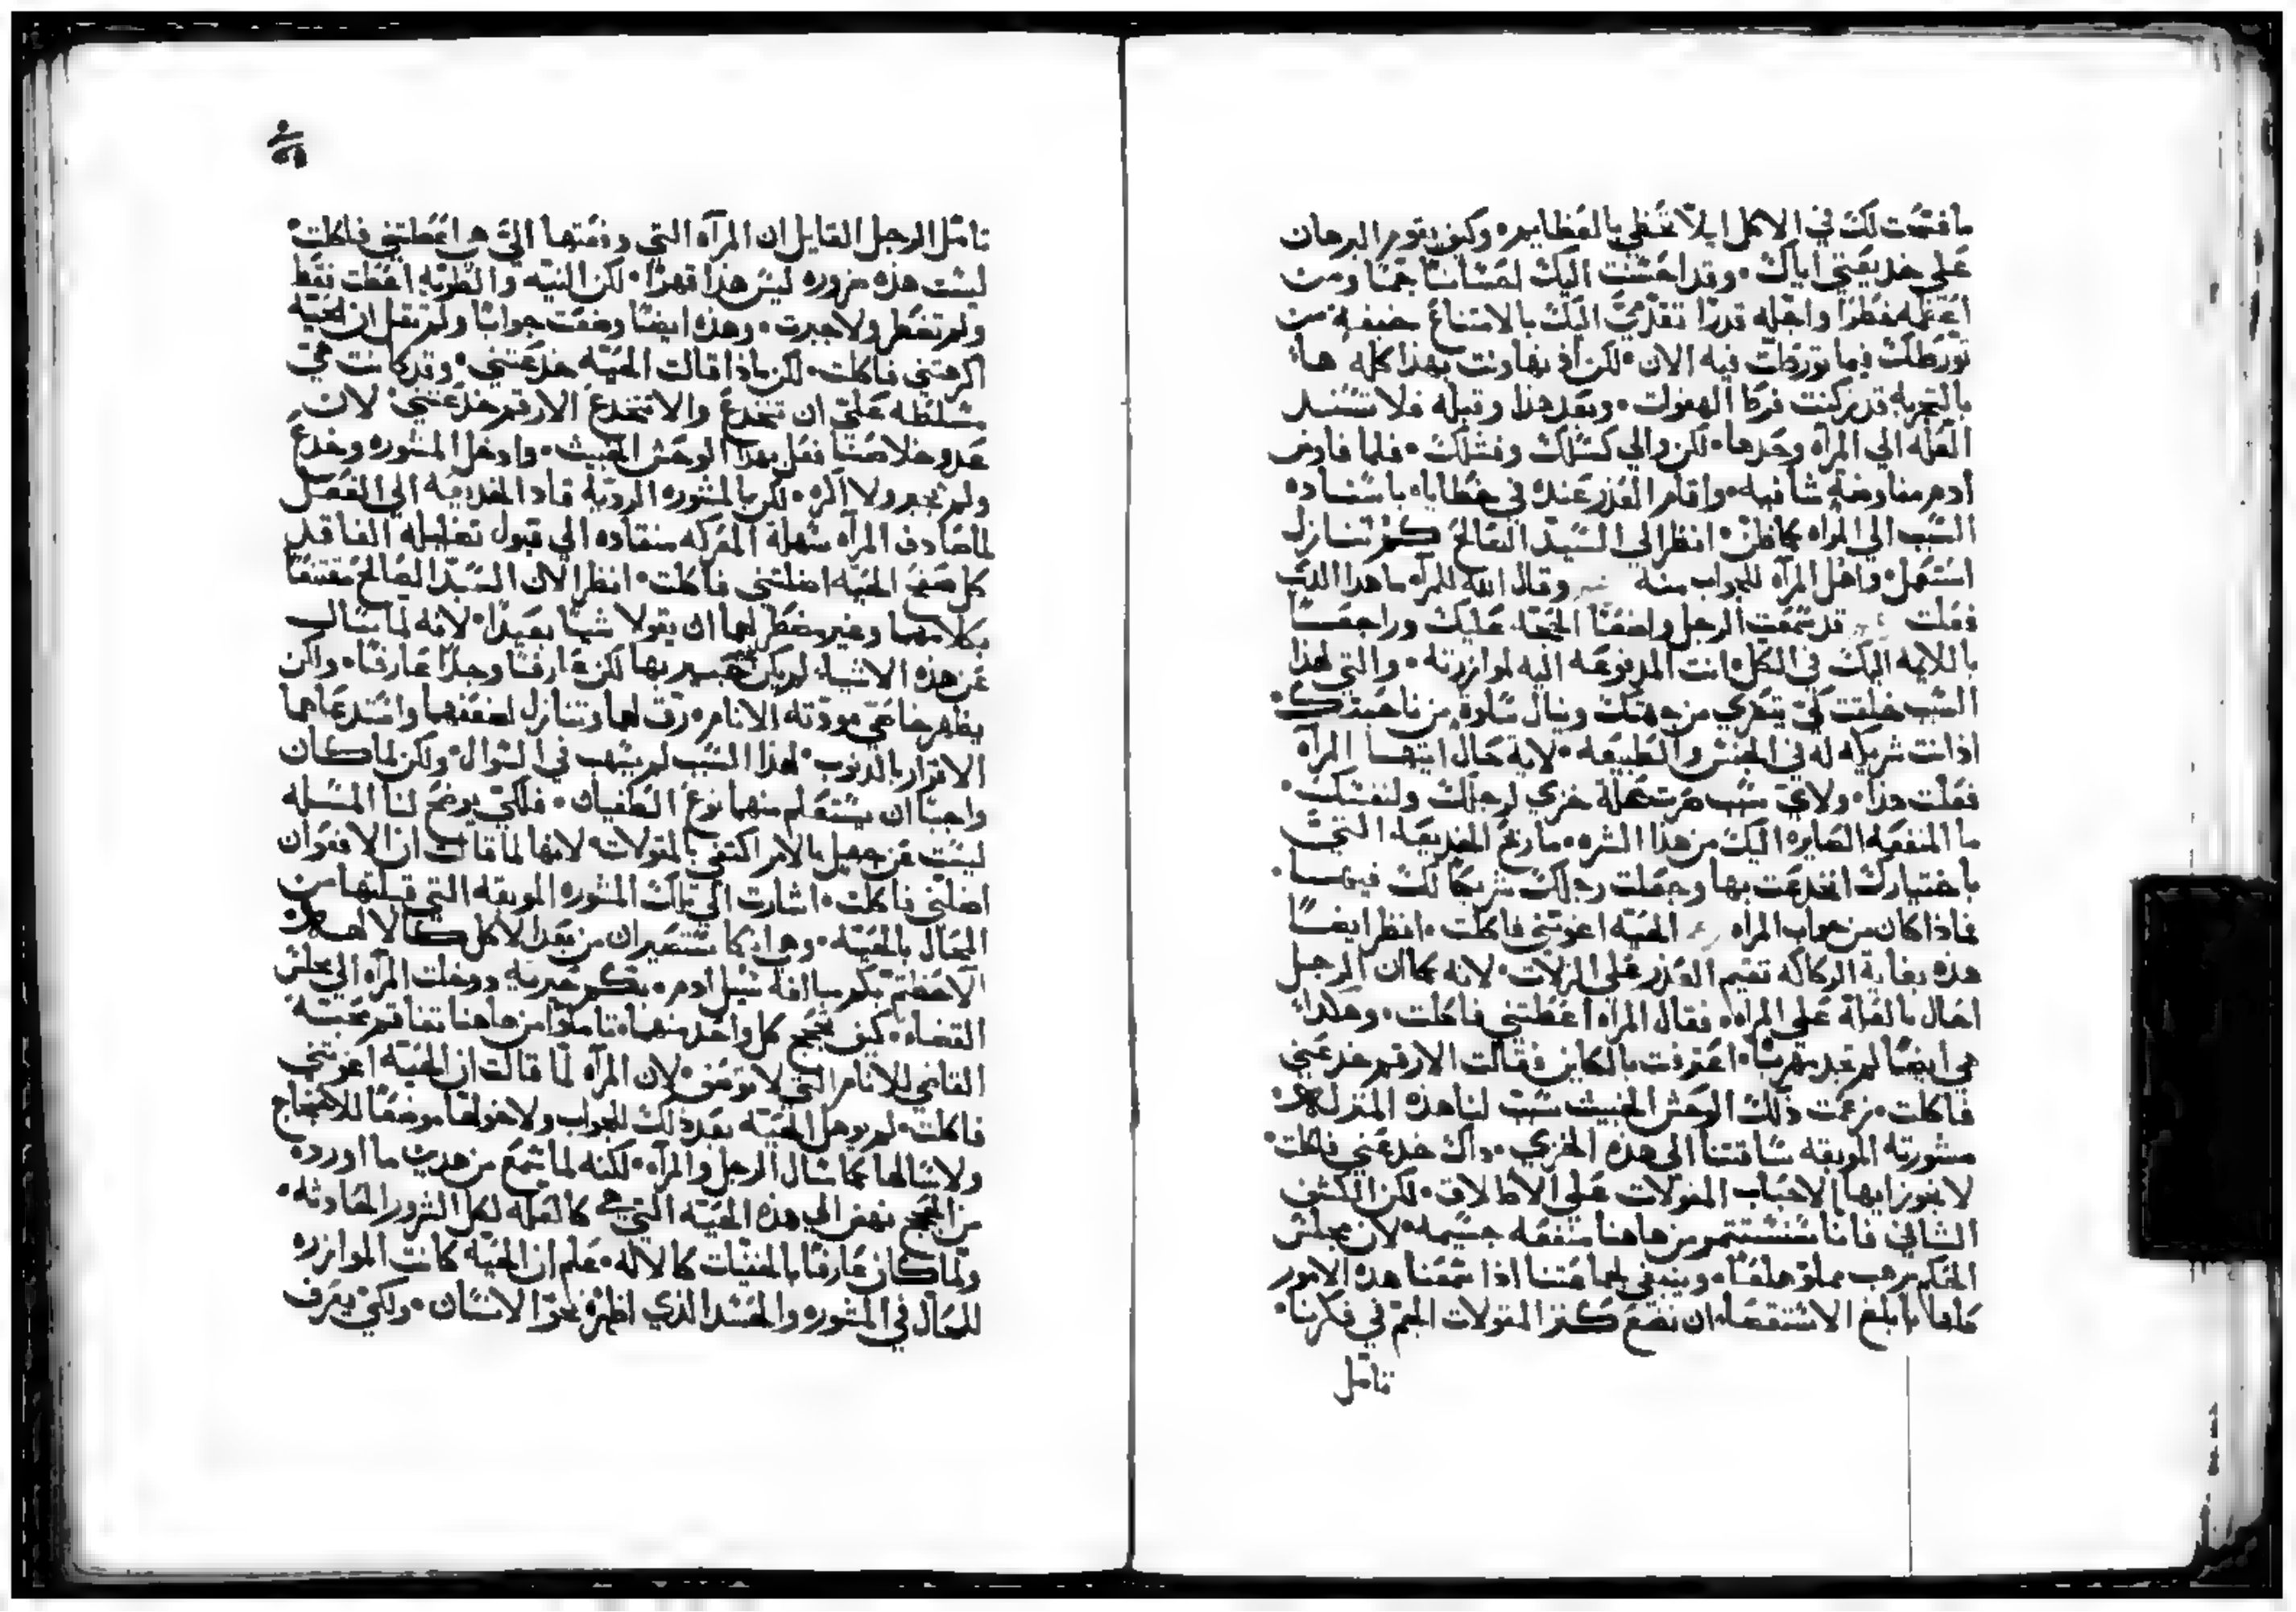 ما فتحت لك في الاكل ايلا تخطي بالعظايم • وكيف يقوم البرهان
علي خديعتي اياك • وقد احسنت اليك احسانا جما ومن
اعظمه فطرا واجله قدرا تقدمت اليك بالامتناع خيفة من
تورطك فيما تورطت فيه الان • لكن اذ تهاونت بهذا كله ها
بالتجربة قد تركت الهفوات • وبعد هذا وقبله فلا تسند
العله الي المرآه وحدها • لكن والي كسلك وفشلك • فلما فاوض
ادم مفاوضة شافيه • واقام العذر عنده في خطاياه باسناده
السبب الي المراه كما ظن • انظر الي السيد الصالح كم تنازل
استعمل • واهل المرآه للجواب منه وقال الله للمرآه ما هذا الذي
فعلت قد سمعت الرجل واضعا الحجة عليك وراجعا
باللايمه اليك في الكل • انت المدفوعه اليه لموازرته • والتي لهذا
السبب خلقت لكي يتعزي من جهتك وينال سلوة من ناحيتك
اذ انت شريكه له في الجنس والطبيعه • لاية حال ايتها المرآه
فعلت هذا • ولاي سبب صرت علة خزي لرجلك ولنفسك •
ما المنفعه الصايره اليك من هذا الشره • مارغ الخديعه التي
باختيارك انخدعت بها وجعلت رجلك شريكا لك فيها •
فماذا كان من جواب المراه الحيه اغوتني فاكلت • انظر ايضا
هذه بغاية الركاكه تقيم العذر علي الزلات • لانه كما ان الرجل
احال بالعلة علي المراه • فقال المراه اعطتني فاكلت • وهكذا
هي ايضا لم تجد مهربا • اعترفت بالكاين فقالت الارقم خدعني
فاكلت • زعمت ذلك الوحش الخبيث سبب لنا هذه المنزله
مشورته الموبقه ساقتنا الي هذه الخزي • ذاك خدعني فاكلت •
لا تجوز ايها الاحباب المقولات علي الاطلاق • لكن الكشف
الشافي فاننا نستثمر من هاهنا منفعه جسيمه • لان مجلس
الحكم مرهب مملو هلعا • وينبغي لجماعتنا اذا سمعنا هذه الامور
كلها بابلغ الاستقصاء ان نضع كنز المقولات الجم في فكرنا •
تامل
تامل الرجل القايل ان المرآه التي دفعتها الي هي اعطتني فاكلت •
ليست هذه مزوره ليس هذا قهرا • لكن النيه والطويه اعطت فقط
ولم تضطر ولا جبرت • وهذه ايضا وضعت جوابا ولم تقل ان الحية
اكرهتني فاكلت • لكن ماذا قالت الحيه خدعتني • وقد كانت هي
سلطه علي ان تنخدع والا تنخدع الارقم خدعني لان
عدو خلاصنا فعل بهذا الوحش الخبيث • وادخل المشوره وخدع
ولم يجبر ولا اكره • لكن بالمشوره الرديه قاد الخديعه الي الفعل
لما صادف المرآه سهلة المعركه منقاده الي قبول تضليله الفاقد
كل صفح الحيه اضلتني فاكلت • انظر الان السيد الصالح مقتنعا
بكلامهما وغير مضطر لهما ان يقولا شيا بعيدا • لانه لما سال
عن هذه الاشياء لم يكن غير بصير بها لكن عارفا وجدا عارفا • ولكن
يظهر ضاعفي مودته الانام • رق لهما وتنازل لضعفهما واستدعاهما
الاقرار بالذنوب • لهذا السبب لم يسهب في السوال • ولكن لما كان
واجبا ان يستعلم منهما نوع الطغيان • فلكي يوضح لنا المسله
ليست عن جهل بالامر اكتفي بالمقولات • لانها لما قالت ان الافعوان
اضلني فاكلت • اشارت الي تلك المشوره الموبقه التي قبلتها من
المحال بالحيه • وهو انكما تستصيران من بعد الاكل كالالهه
الاحظتم بكم مباافه سيل ادم • بكم خيريه ودخلت المرآه الي مجلس
القضاء • كيف يحجج كل واحد منهما • تاملوا من هاهنا تفاقم محبة
القاضي للانام التي لا توصف • لان المرآه لما قالت ان الحيه اغوتني
فاكلت • لم يوهل الحيه بعد ذلك للجواب ولا خولها موضعا للاحتجاج
ولا سالها كما سال الرجل والمرآه • لكنه لما سمع من هذين ما اورده
من الحجج نهض الي هذه الحيه التي هي كالعله لكل الشرور الحادثه •
ولما كان عارفا بالخفيات كالاله • علم ان الحيه كانت الموازره
للمحال في المشوره والحسد الذي اظهره نحو الانسان • ولكي يعرف